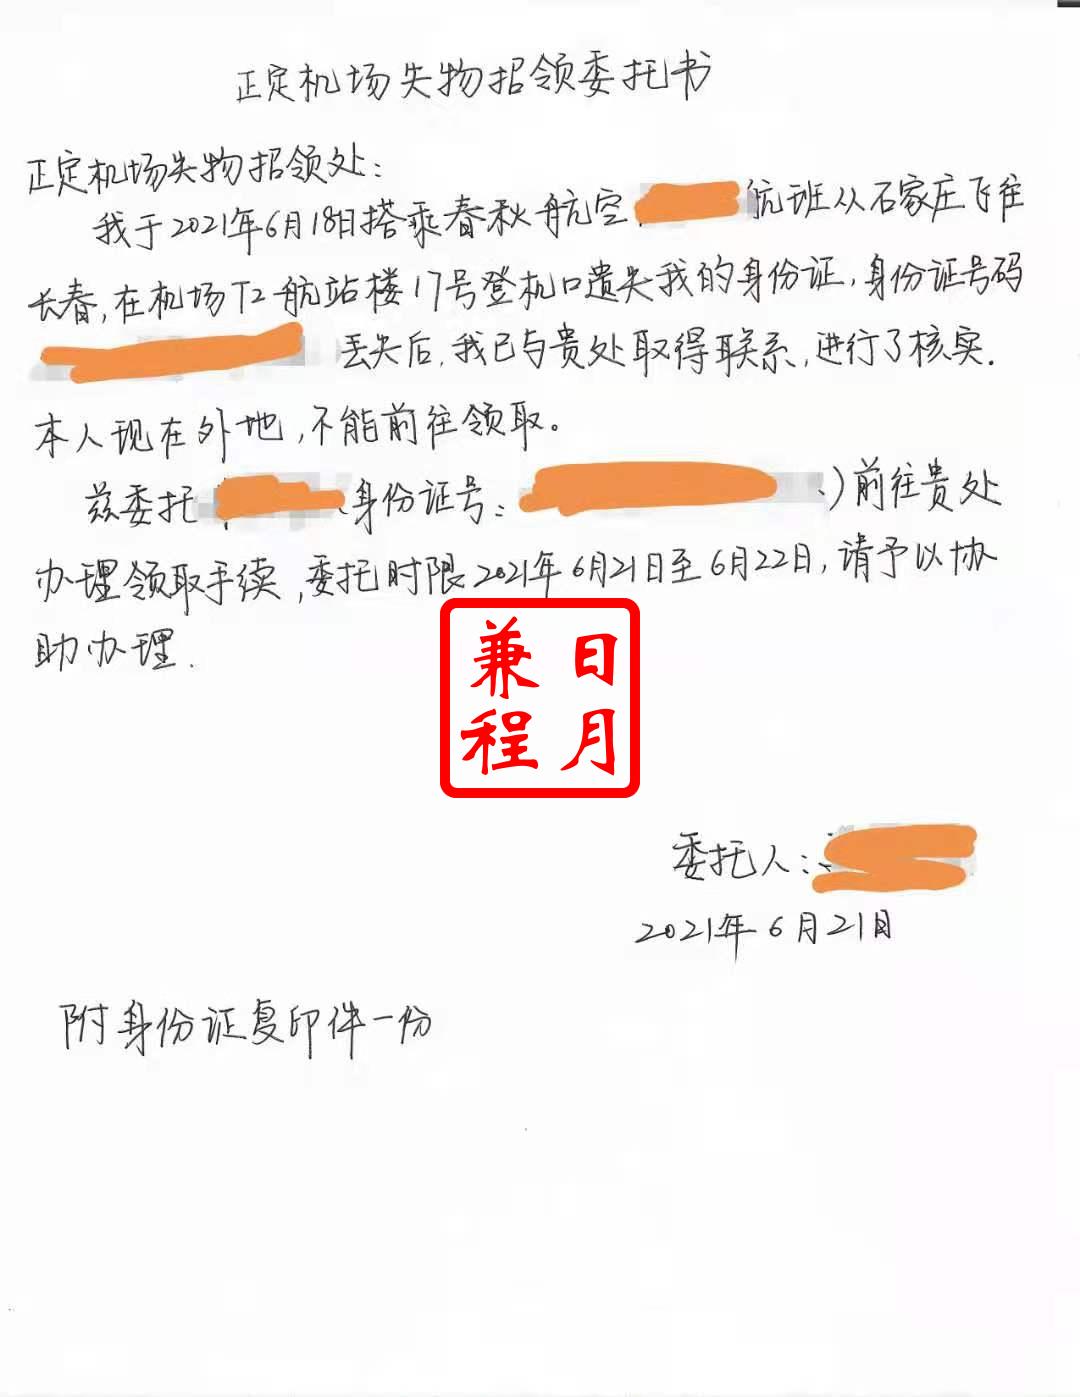 正定机场失物招领委托书
正定机场失物招领处:
我于2021年6月18日搭乘春秋航空
航班从石家庄飞往
长春,在机场T2航站楼17号登机口遗失我的身份证,身份证号码
丢失后,我已与贵处取得联系,进行了核实.
本人现在外地,不能前往领取。
兹委托
(身份证号:
)前往贵处
办理领取手续,委托时限2021年6月21日至6月22日,请予以协
助办理.
日月
兼程
委托人:
2021年6月21日
附身份证复印件一份